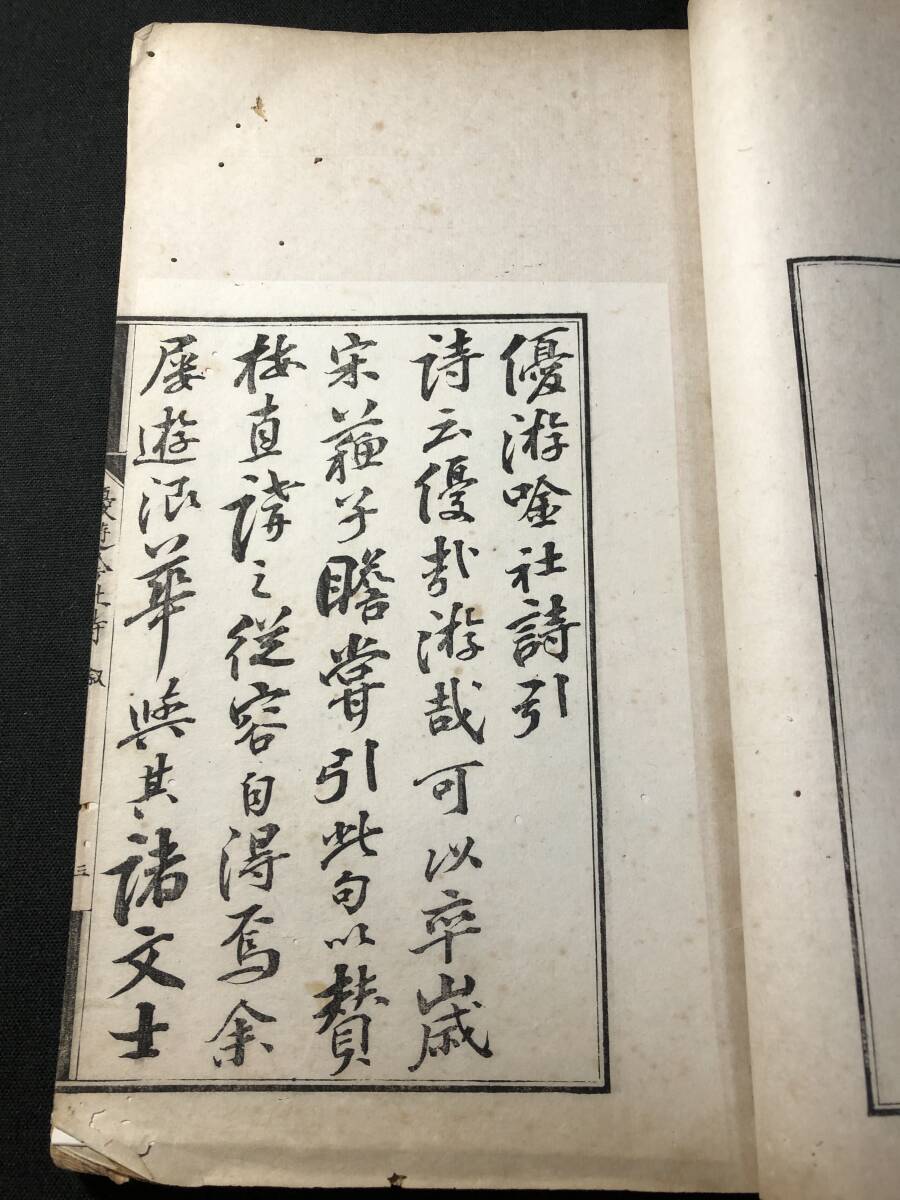 優游唫社詩引
詩云優哉游哉可以卒歲
宋蘇子瞻嘗引此句以贊
梅直講之從容自得焉余
屡遊浪華與其諸文士
優游吟社詩 叙
三